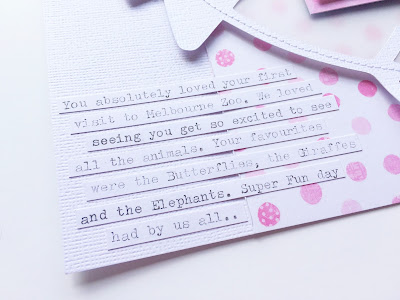 You absolutely loved your first
visit to Melbourne Zoo. We loved
seeing you get so excited to see
all the animals. Your favourites
were the Butterflies, the Giraffes
and the Elephants. Super Fun day
had by us all..